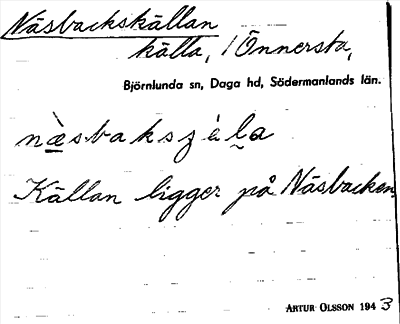 Näsbackskällan
källa, / Önnersta,
Björnlunda sn, Daga hd, Södermanlands län.
Källan ligger på Näsbacken
ARTUR OLSSON 1943